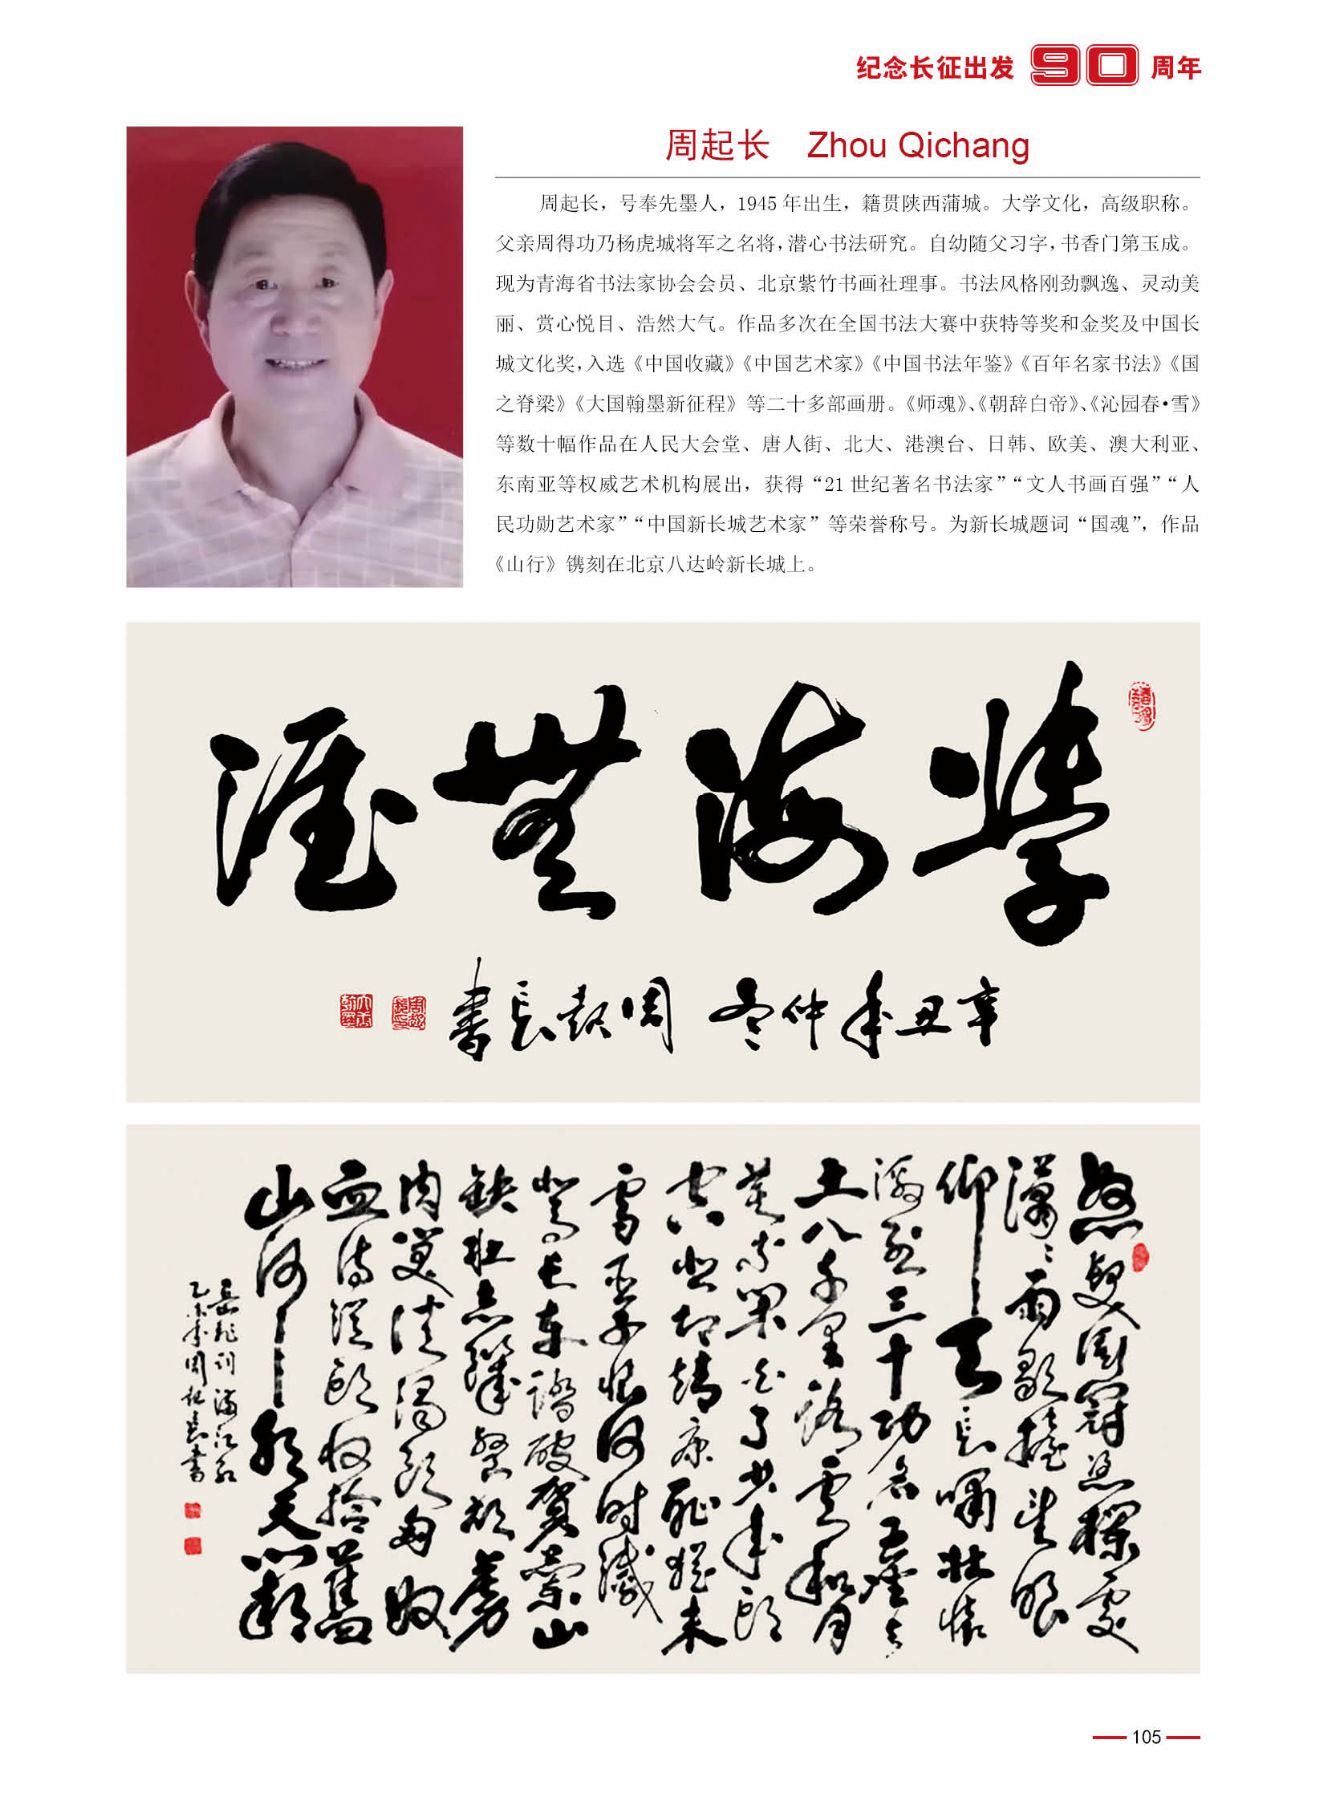 纪念长征出发90周年
周起长 Zhou Qichang
周起长，号奉先墨人，1945年出生，籍贯陕西蒲城。大学文化，高级职称。
父亲周得功乃杨虎城将军之名将，潜心书法研究。自幼随父习字，书香门第玉成。
现为青海省书法家协会会员、北京紫竹书画社理事。书法风格刚劲飘逸、灵动美
丽、赏心悦目、浩然大气。作品多次在全国书法大赛中获特等奖和金奖及中国长
城文化奖，入选《中国收藏》《中国艺术家》《中国书法年鉴》《百年名家书法》《国
之脊梁》《大国翰墨新征程》等二十多部画册。《师魂》、《朝辞白帝》、《沁园春•雪》
等数十幅作品在人民大会堂、唐人街、北大、港澳台、日韩、欧美、澳大利亚、
东南亚等权威艺术机构展出，获得“21世纪著名书法家”“文人书画百强”“人
民功勋艺术家”“中国新长城艺术家”等荣誉称号。为新长城题词“国魂”，作品
《山行》镌刻在北京八达岭新长城上。
學海無涯
辛丑年仲冬 周起长書
怒髮衝冠憑欄處
瀟瀟雨歇擡望眼
仰天長嘯壯懷
激烈三十功名塵與
土八千里路雲和月
莫等閑白了少年頭
空悲切靖康耻猶未
雪臣子恨何時滅
駕長車踏破賀蘭山
缺壯志飢餐胡虜
肉笑談渴飲匈奴
血待從頭收拾舊
山河朝天闕
岳飛詞滿江紅
乙未年周起长書
105